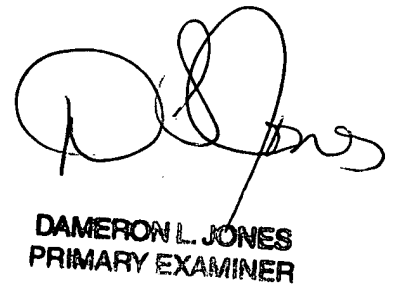 D L Jones
DAMERON L. JONES
PRIMARY EXAMINER